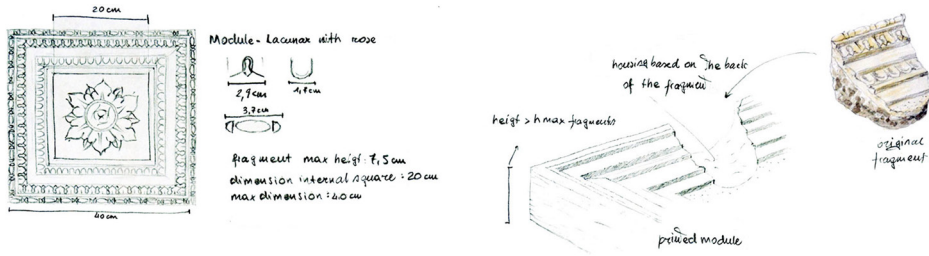 20cm
Module - Lacunar with rose
2,9cm
1,8cm
3,7cm
fragment max heigt: 7,5 cm
dimension internal square: 20 cm
max dimension: 40 cm
40cm
housing based on the back
of the fragment
heigt > h max fragments
original
fragment
printed module